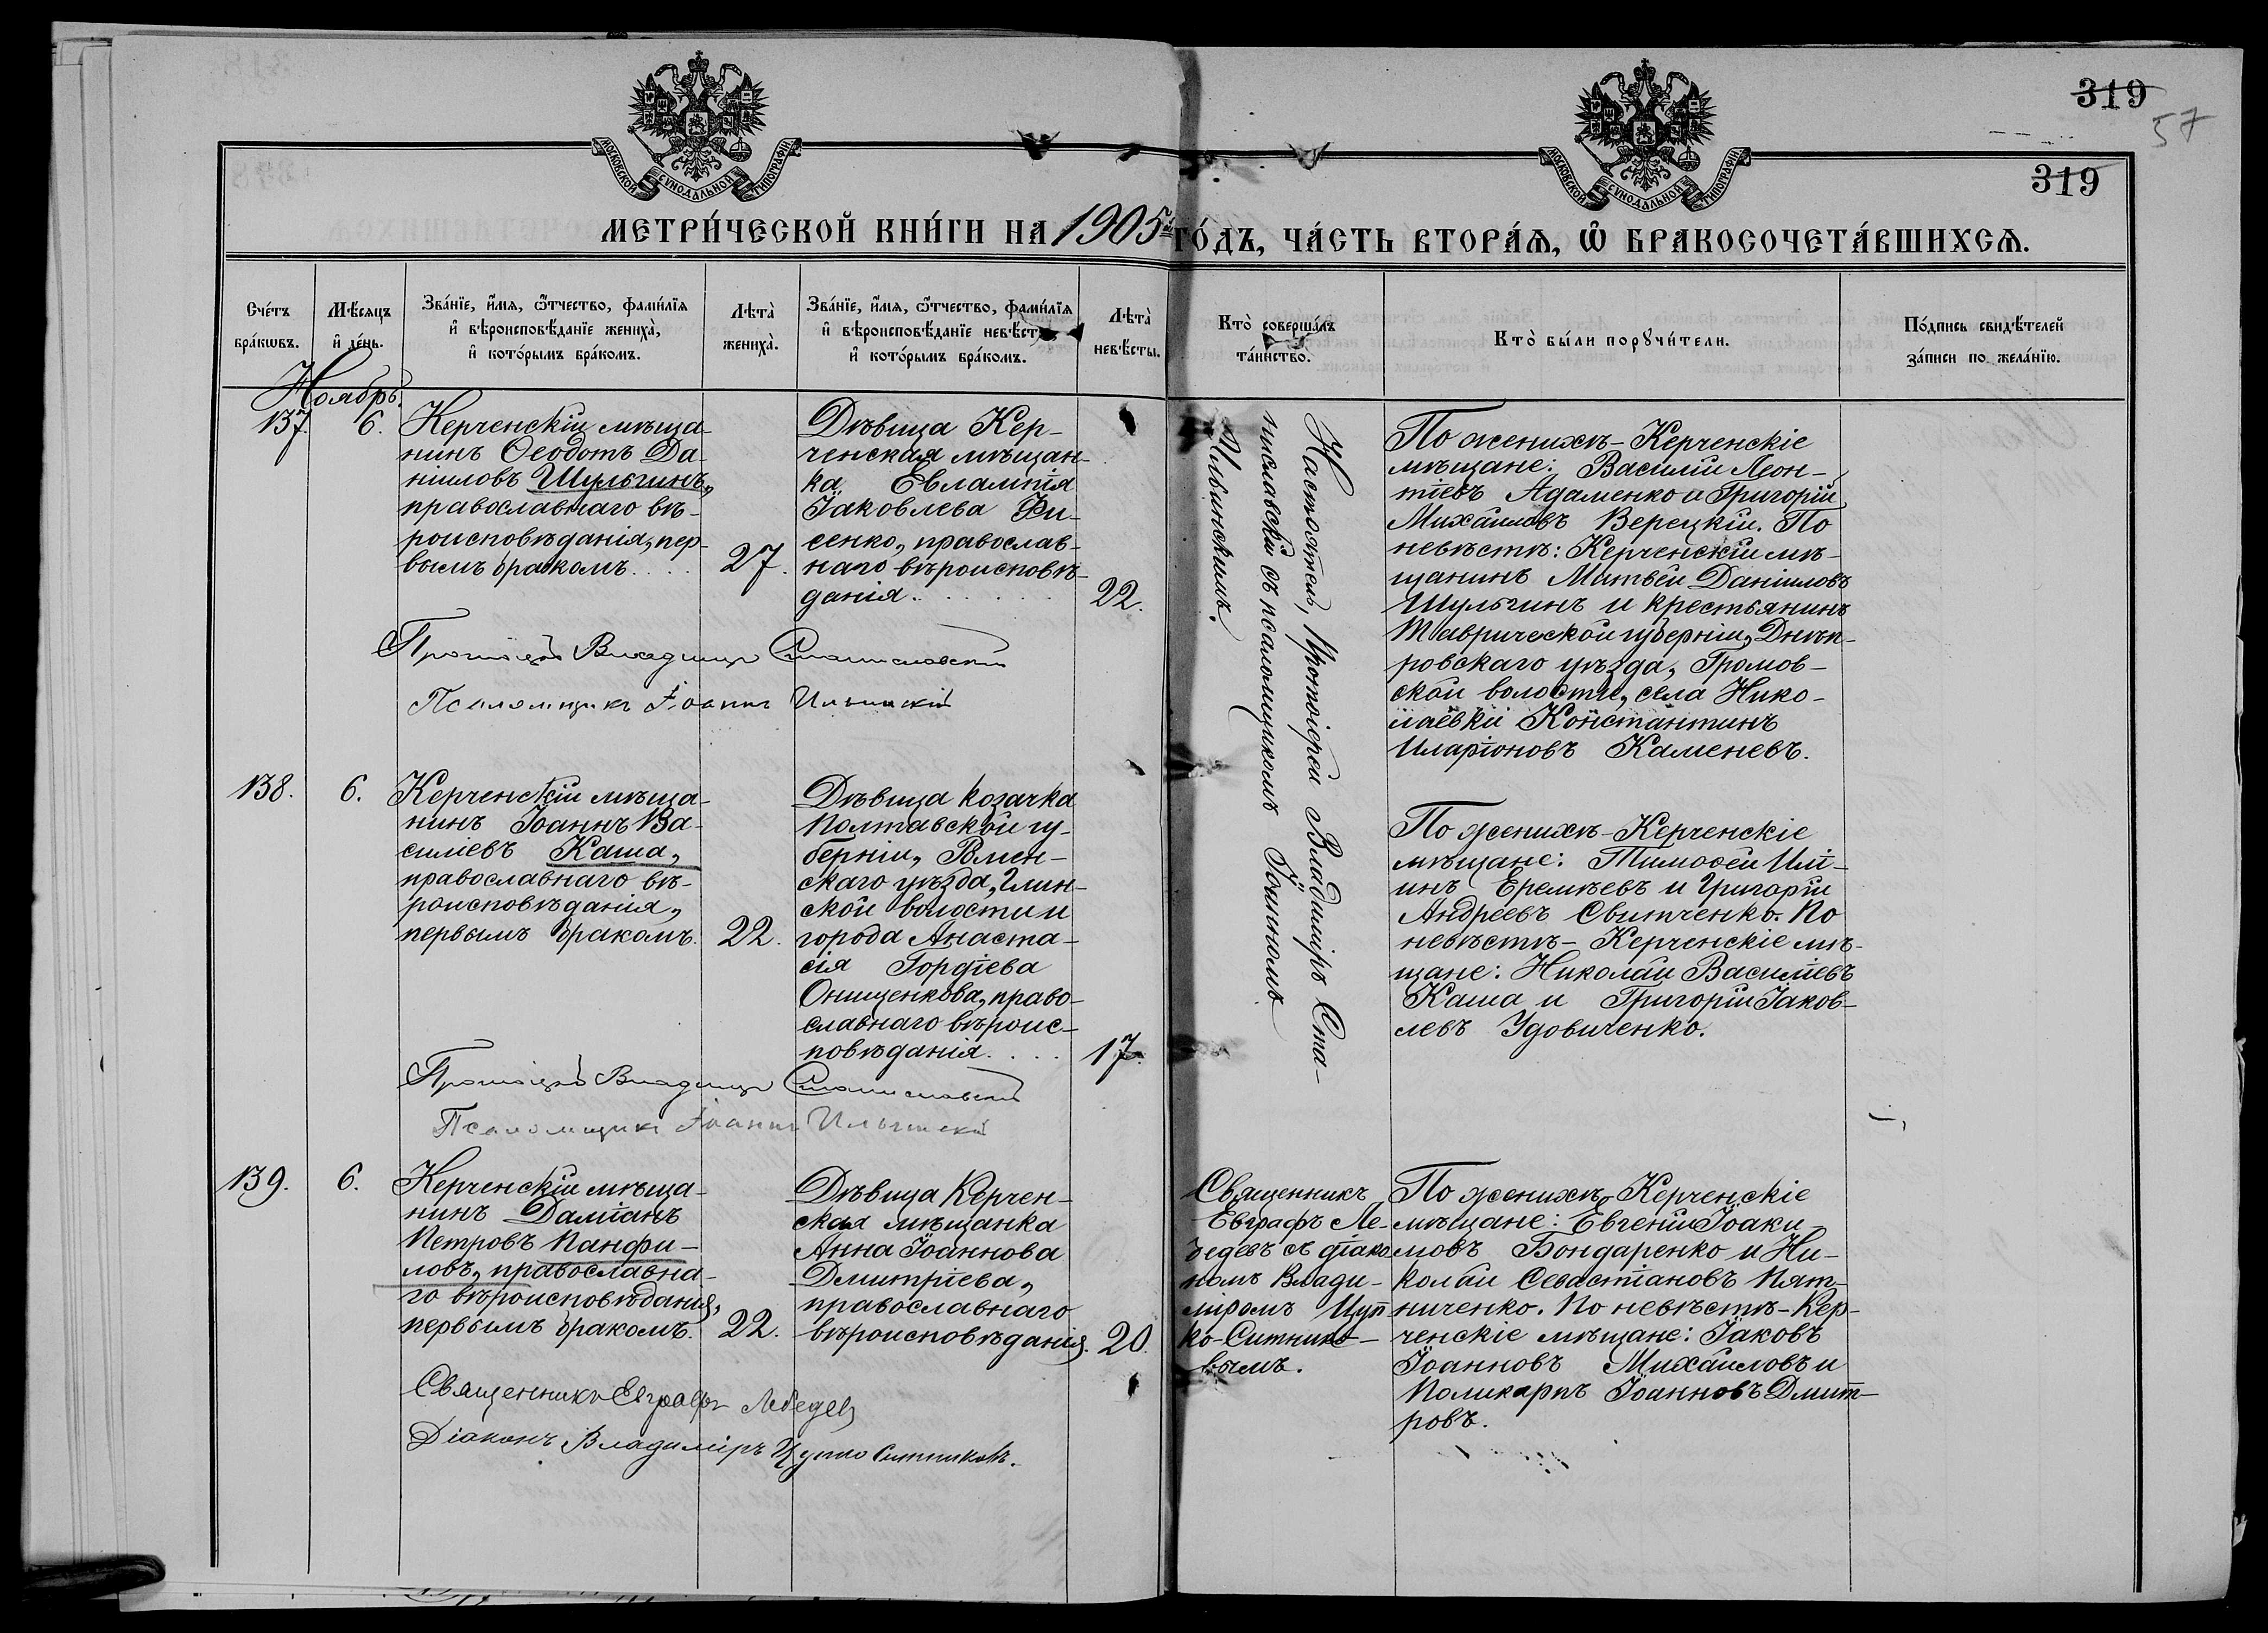 319
57
319
МОСКОВСКОЙ СѴНОДАЛЬНОЙ ТИПОГРАФІИ
МОСКОВСКОЙ СѴНОДАЛЬНОЙ ТИПОГРАФІИ
МЕТРИ́ЧЕСКОЙ КНИ́ГИ НА 1905й ГО́ДЪ, ЧА́СТЬ ВТОРА́Ѧ, Ѽ БРАКОСОЧЕТА́ВШИХСѦ.
Сче́тъ
бра́кѡвъ.
Мѣ́сѧцъ
и҆ де́нь.
Зва́нїе, и҆́мѧ, ѻ҆́тчество, фами́лїѧ
и҆ вѣроисповѣ́данїе жениха̀,
и҆ кото́рымъ бра́комъ.
Лѣта̀
жениха̀.
Зва́нїе, и҆́мѧ, ѻ҆́тчество, фами́лїѧ
и҆ вѣроисповѣ́данїе невѣ́сты,
и҆ кото́рымъ бра́комъ.
Лѣта̀
невѣ́сты.
Кто̀ соверша́лъ
та́инство.
Кто̀ бы́ли порꙋчи́тели.
По́дпись свидѣ́телей
за́писи по жела́нїю.
Ноябрь.
137. 6.
Керченскій мѣща-
нинъ Ѳеодотъ Да-
ніиловъ Шульгинъ,
православнаго вѣ-
роисповѣданія, пер-
вымъ бракомъ....
27.
Дѣвица Кер-
ченская мѣщан-
ка Евлампія
Іаковлева Фи-
сенко, православ-
наго вѣроисповѣ-
данія......
22.
Настоятель, Протоіерей Владиміръ Ста-
ниславскій съ псаломщикомъ Іоанномъ
Ильинскимъ.
По женихѣ - Керченскіе
мѣщане: Василій Леон-
тіевъ Адаменко и Григорій
Михайловъ Верецкій. По
невѣстѣ: Керченскій мѣ-
щанинъ Матвѣй Даніиловъ
Шульгинъ и крестьянинъ
Таврической губерніи, Днѣп-
ровскаго уѣзда, Громов-
ской волости, села Нико-
лаевки Константинъ
Иларіоновъ Каменевъ.
Протоіерей Владиміръ Станиславскій
Псаломщикъ Іоаннъ Ильинскій
138. 6.
Керченскій мѣща-
нинъ Іоаннъ Ва-
силіевъ Каша,
православнаго вѣ-
роисповѣданія,
первымъ бракомъ.
22.
Дѣвица козачка
Полтавской гу-
берніи, Рмен-
скаго уѣзда, Глин-
ской волости и
города Анаста-
сія Гордіева
Онищенкова, право-
славнаго вѣроис-
повѣданія....
17.
По женихѣ - Керченскіе
мѣщане: Тимоѳей Илі-
инъ Еремѣевъ и Григорій
Андреевъ Свитченко. По
невѣстѣ - Керченскіе мѣ-
щане: Николай Василіевъ
Каша и Григорій Іаков-
левъ Удовиченко.
Протоіерей Владиміръ Станиславскій
Псаломщикъ Іоаннъ Ильинскій
139. 6.
Керченскій мѣща-
нинъ Даміанъ
Петровъ Панфи-
ловъ, православна-
го вѣроисповѣданія,
первымъ бракомъ.
22.
Дѣвица Керчен-
ская мѣщанка
Анна Іоаннова
Димитріева,
православнаго
вѣроисповѣданія.
20.
Священникъ
Евграфъ Ле-
бедевъ съ діако-
номъ Влади-
міромъ Цуп-
ко-Ситнико-
вымъ.
По женихѣ - Керченскіе
мѣщане: Евгеній Іоаки-
мовъ Бондаренко и Ни-
колай Севастіановъ Пят-
ниченко. По невѣстѣ - Кер-
ченскіе мѣщане: Іаковъ
Іоанновъ Михайловъ и
Поликарпъ Іоанновъ Дмит-
ровъ.
Священникъ Евграфъ Лебедевъ
Діаконъ Владиміръ Цупко Ситниковъ.